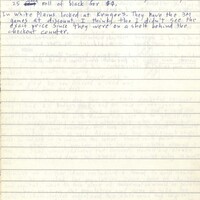 is roll of black for $9.
In White Plains looked at Reugers. They have the 3M
games at discount I think, tho I didn't see the
exact price since they were on a shelf behind the
checkout counter.